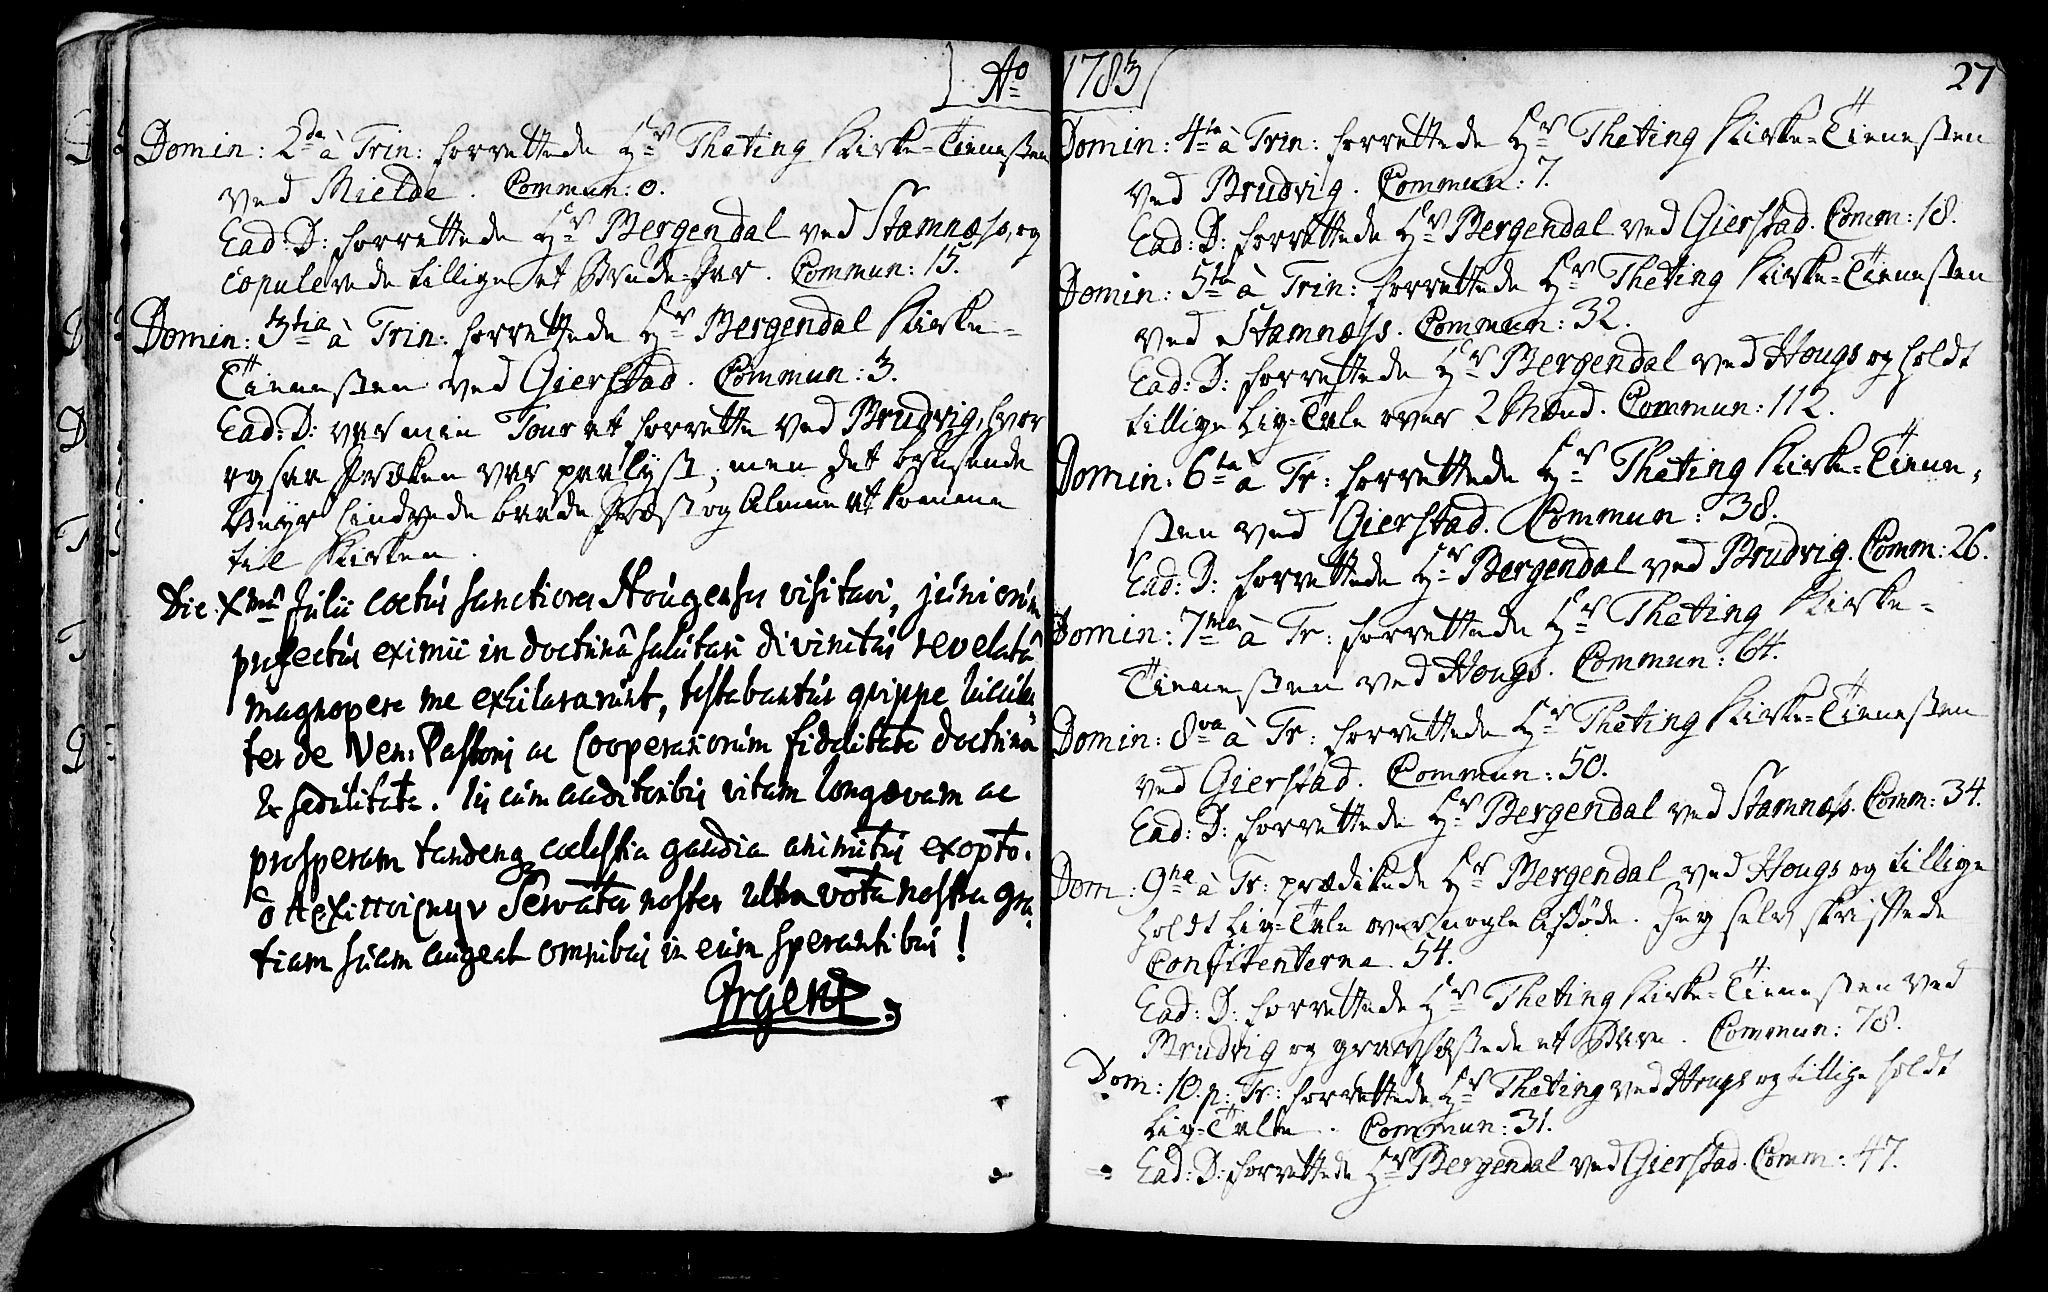 Ao
Domin: 2da à Trin: forrettede Hr Theting Kirke-Tienesten
ved Mielde. Commun: 0.
Ead: D: forrettede Hr Bergendal ved Stamnæss, og
copulerede tillige et Brude-Par. Commun: 15.
Domin: 3tia à Trin: forrettede Hr Bergendal Kirke-
Tienesten ved Gierstad. Commun: 3.
Ead: D: var min Tour at forrette ved Brudvig, hvor
ogsaa Præken var paalyst; men det brusende
Veyr hindrede baade Præst og Almue at komme
til Kirken.
Die Xmâ Julii coetus sanctiores Hougenses visitavi, juniorum
profectus eximii in doctrinâ salutari divinitus revelatâ
magnopere me exhilararunt, testabantur qvippe luculen-
ter de Ven: Pastoris ac Cooperatorum fidelitate doctrina
& sedulitate. Iis cum auditoribus vitam longævam ac
prosperam tandemq coelestia gaudia animitus exopto.
ὁ Servator noster ultra vota nostra gra-
tiam suam augeat omnibus in eum sperantibus!
Irgens.
1783
27
Domin: 4ta à Trin: forrettede Hr Theting Kirke-Tienesten
ved Brudvig. Commun: 7.
Ead: D: forrettede Hr Bergendal ved Gierstad. Comm: 18.
Domin: 5ta à Trin: forrettede Hr Theting Kirke-Tienesten
ved Stamnæss. Commun: 32.
Ead: D: forrettede Hr Bergendal ved Hougs og holdt
tillige Lig-Tale over 2 Mænd. Commun: 112.
Domin: 6ta à Tr: forrettede Hr Theting Kirke-Tiene-
sten ved Gierstad. Commun: 38.
Ead: D: forrettede Hr Bergendal ved Brudvig. Comm: 26.
Domin: 7ma à Tr: forrettede Hr Theting Kirke-
Tienesten ved Hougs. Commun: 64.
Domin: 8va à Tr: forrettede Hr Theting Kirke-Tienesten
ved Gierstad. Commun: 50.
Ead: D: forrettede Hr Bergendal ved Stamnæss. Comm: 34.
Dom: 9na à Tr: prædikede Hr Bergendal ved Hougs og tillige
holdt Lig-Tale over nogle afdøde. Jeg selv skriftede
Confitenterne. 54.
Ead: D: forrettede Hr Theting Kirke-Tienesten ved
Brudvig og gravfæstede et Barn. Commun: 78.
Dom: 10. p: Tr: forrettede Hr Theting ved Hougs og tillige holdt
Lig-Tale. Commun: 31.
Ead: D: forrettede Hr Bergendal ved Gierstad. Comm: 47.